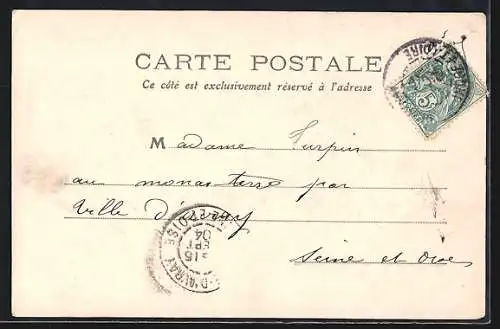 CARTE POSTALE
Ce côté est exclusivement réservé à l'adresse
Madame Turpin
au monastere par
Ville d'Avray
Seine et Oise
5
D'AVRAY
15
SEPT
04
ET-OISE
LOIRE